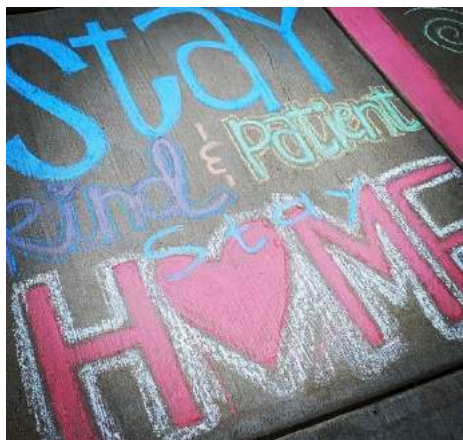 Stay
kind & Patient
Stay
HOME